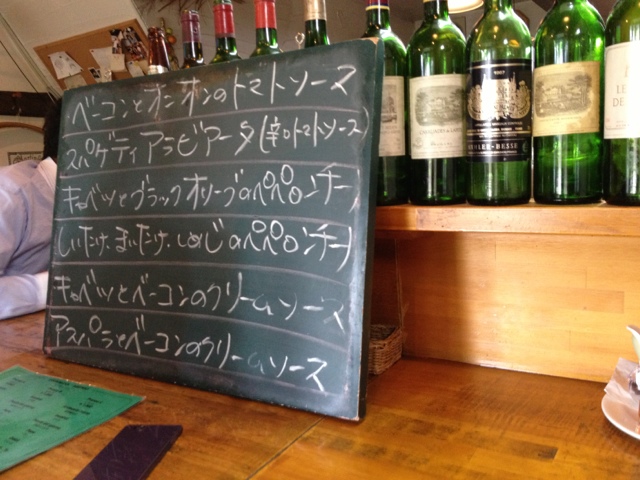 ベーコンとオニオンのトマトソース
スパゲティアラビアータ(辛口トマトソース)
キャベツとブラックオリーブのペペロンチーノ
しいたけ、まいたけ、しめじのペペロンチーノ
キャベツとベーコンのクリームソース
アスパラとベーコンのクリームソース